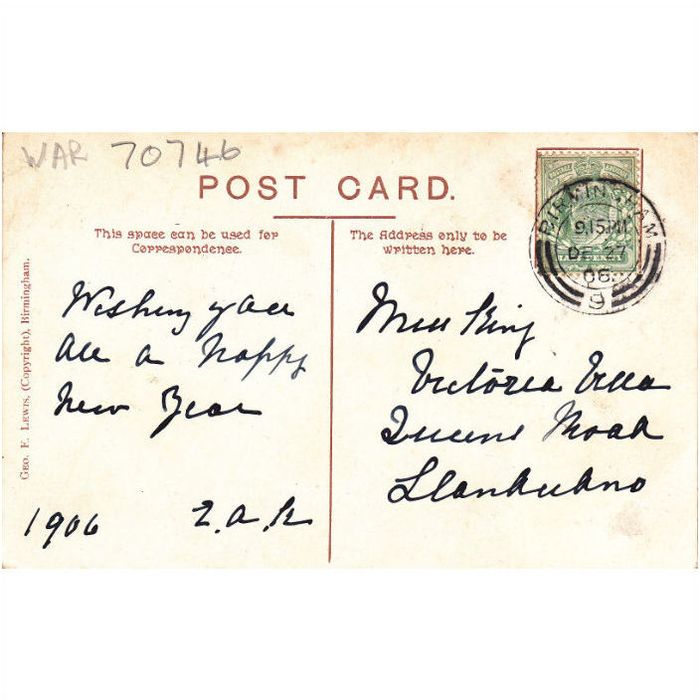 WAR 70746
POST CARD.
This space can be used for
Correspondence.
The Address only to be
written here.
BIRMINGHAM
9.15 PM
DE 27
06
9
HALFPENNY
GEO. F. LEWIS, (Copyright), Birmingham.
Wishing you all
all a Happy
New Year
1906
Miss King
Victoria Villa
Queens Road
Llandudno